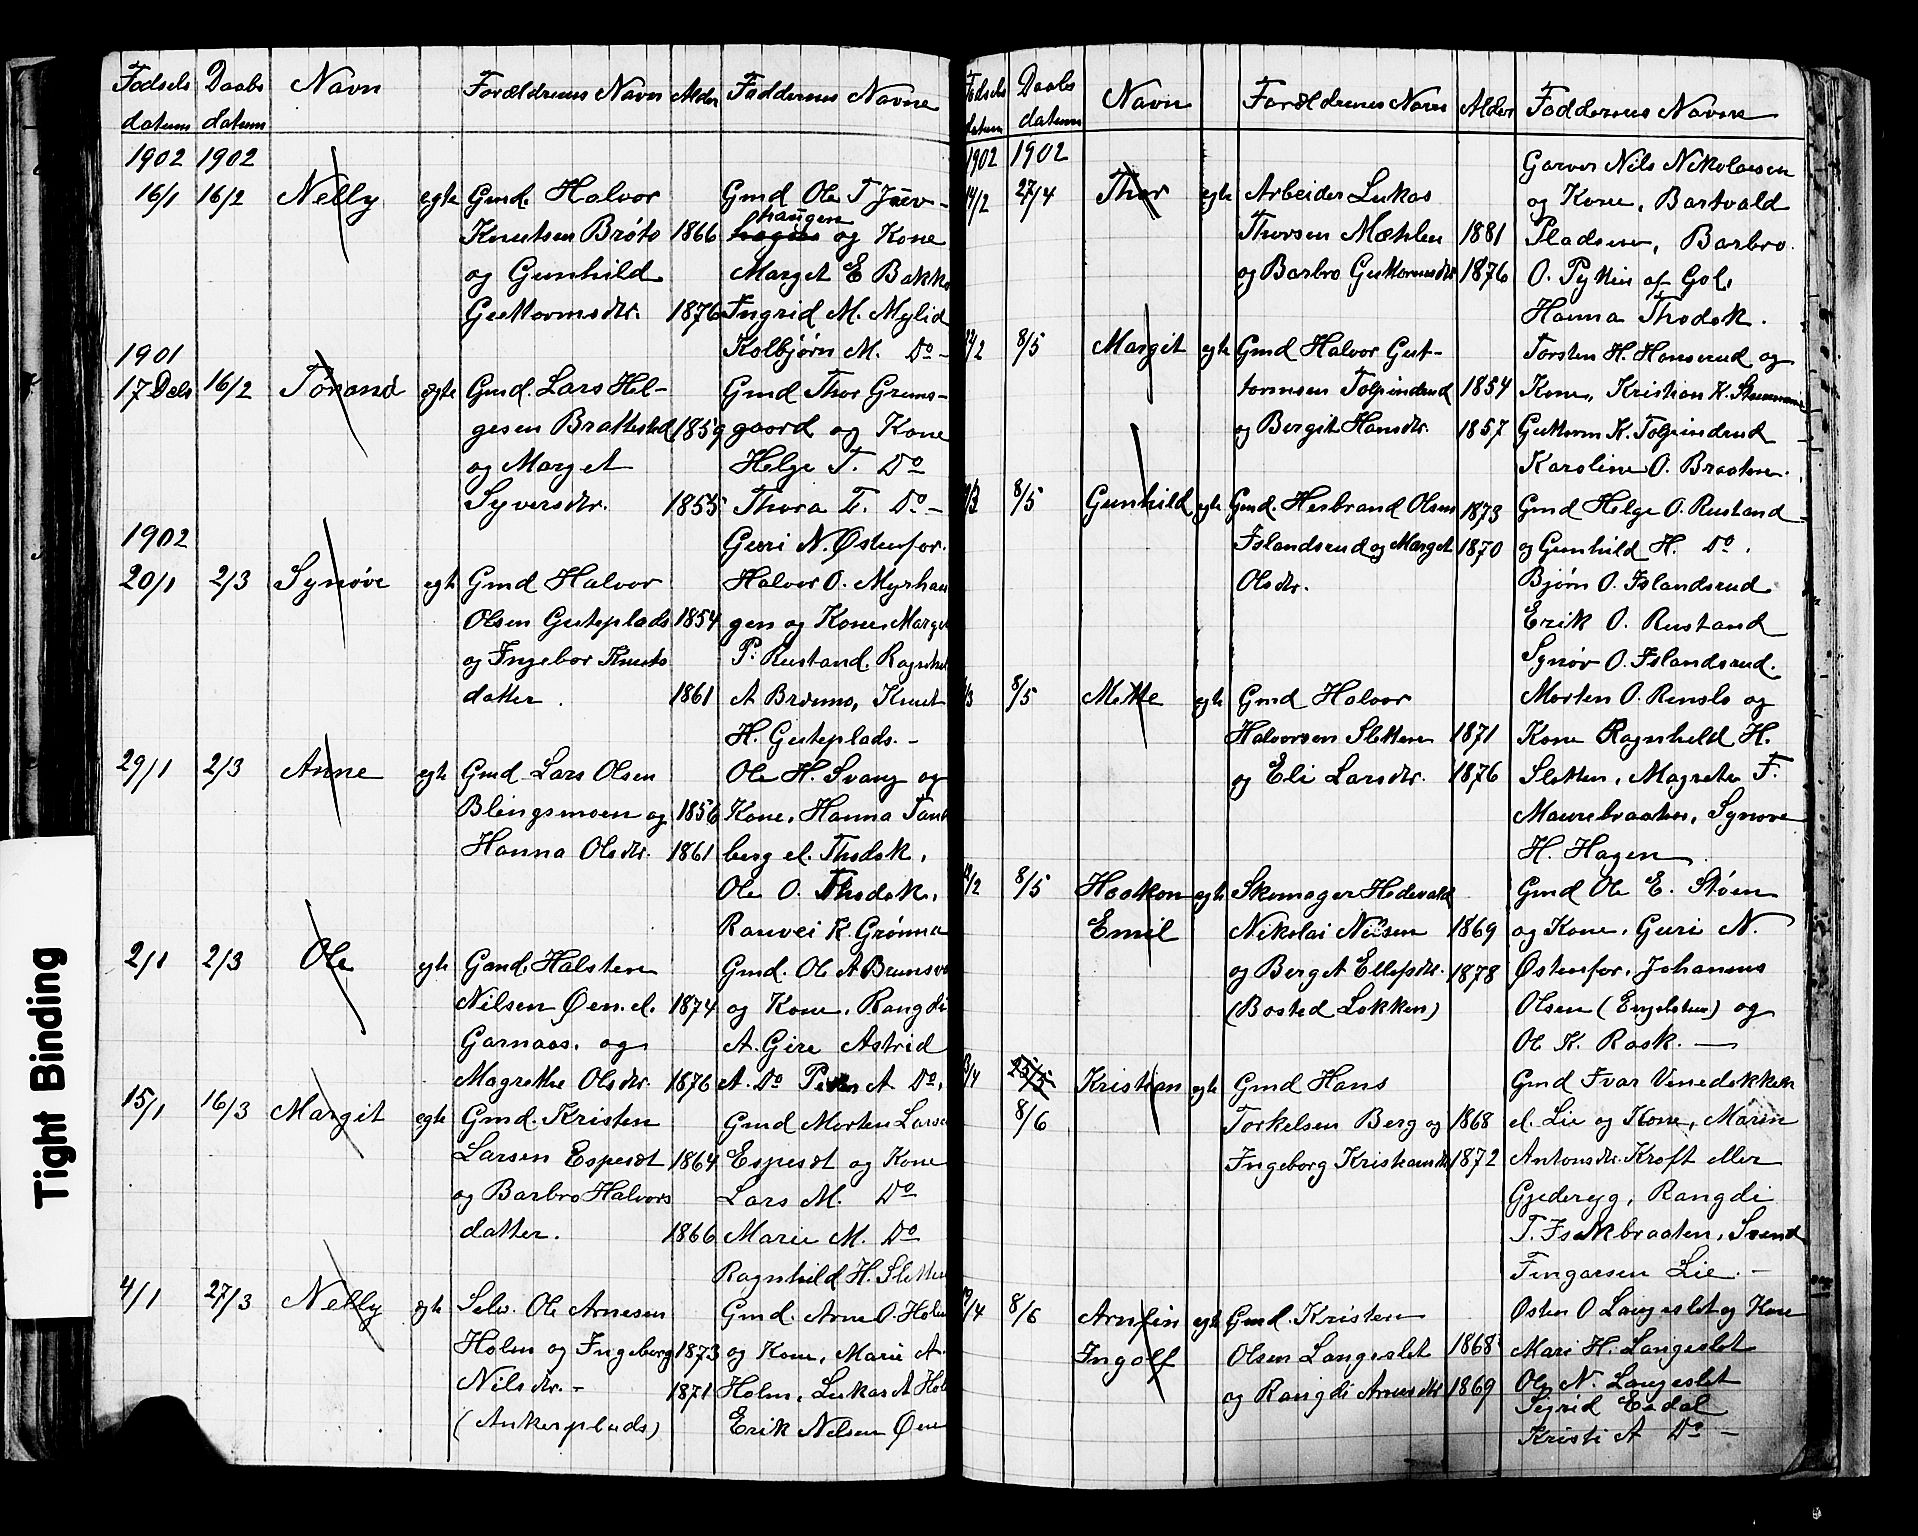 Fødsels datum Daabs datum Navn Forældrenes Navn Alder Faddernes Navne
1902 1902
16/1 16/2 Nelly egte Gmd. Halvor Gmd Ole T Juv-
haugen
Knutsen Brøto 1866 og Kone
og Gunhild Marget E Bakke
Guttormsdtr. 1876 Ingrid M. Mylid
1901 Kolbjørn M. Do -
17 Dcb 16/2 Tørand ægte Gmd. Lars Hel- Gmd Thor Grøns-
gesen Brattestad 1859 gaard og Kone
og Marget Helge T. Do
Syversdtr. 1855 Thora T. Do -
1902 Guri N. Østenfor.
20/1 2/3 Synøve egte Gmd Halvor Halvor O. Myrhau
Olsen Gusteplads 1854 gen og Kone, Marget
og Ingebor Knuts P. Rustand, Ragnhil
datter. 1861 A Brøms, Knut
H. Gusteplads. -
29/1 2/3 Anne egte Gmd. Lars Olsen Ole H. Svang og
Blingsmoen og 1856 Kone, Hanna
Hanna Olsdtr. 1861 berg el. Thodok,
Ole O. Thodok,
Ranvei K. Grønna
2/1 2/3 Ole egte Gmd. Halsten Gmd. Ole A Brunsvo
Nilsen Øen. el. 1874 og Kone, Rangdi
Garnaas. og A. Gire Astrid
Magrethe Olsdtr. 1876 A. Do Peder A Do.
15/1 16/3 Margit egte Gmd. Kristen Gmd Morten Larse
Larsen Espeset 1864 Espeset og Kone
og Barbro Halvors Lars M. Do
datter. 1866 Marie M. Do
Ragnhild H. Sletten
4/1 27/3 Nelly egte Selv. Ole Arnesen Gmd. Arne O. Holm
Holm og Ingeborg 1873 og Kone, Marie A.
Nilsdtr. - 1871 Holm, Lukas A Hol
(Ankerplads) Erik Nelsen Øen
Fødsels datum Daabs datum Navn Forældrenes Navn Alder Faddernes Navne
1902 1902 Garver Nils Nikolaesen
14/2 27/4 Thor egte Arbeider Lukas og Kone, Bartvald
Thorsen Mæhlen 1881 Pladsen, Barbro
og Barbro Guttormsdtr 1876 O. Pytten af Gol,
Hanna Thodok.
/2 8/5 Margit egte Gmd Halvor Gut- Torsten H. Hanserud og
tormsen Tolpinrud 1854 Kone, Kristian K.
og Bergit Hansdtr. 1857 Guttorm K. Tolpinrud
Karoline O. Braaten.
/3 8/5 Gunhild egte Gmd. Herbrand Olsen 1873 Gmd Helge O. Rustand
Islandsrud og Marget 1870 og Gunhild H. Do.
Olsdtr. Bjørn O. Islandsrud
Erik O. Rustand
Synøv O. Islandsrud.
/3 8/5 Mette egte Gmd Halvor Morten O. Renslo og
Halvorsen Sletten 1871 Kone Ragnhild H.
og Eli Larsdtr. 1876 Sletten, Magrete T.
Maurebraaten, Synove
H. Hagen
/2 8/5 Haakon egte Skomager Hedevald Gmd Ole E. Støen
Emil Nikolai Nilsen 1869 og Kone, Guri N.
og Berget Ellefsdtr. 1878 Østenfor, Johannes
(Bosted Lokken) Olsen (Engelstien) og
Ole K. Rask. -
/4 25/5 Kristian egte Gmd Hans Gmd Ivar Venedokken
8/6 Torkelsen Berg og 1868 el. Lie og Kone, Maren
Ingeborg Kristiansdtr 1872 Antonsdtr. Kroft eller
Gjederyg, Rangdi
T. Isakbraaten, Svend
Fingarsen Lie. -
/4 8/6 Arnfin egte Gmd. Kristen Østen O Langeslet og Kone
Ingolf Olsen Langeslet 1868 Mari H. Langeslet
og Rangdi Arnesdtr 1869 Ole N. Langeslet
Sigrid Esdal
Kristi A Do -
Tight Binding